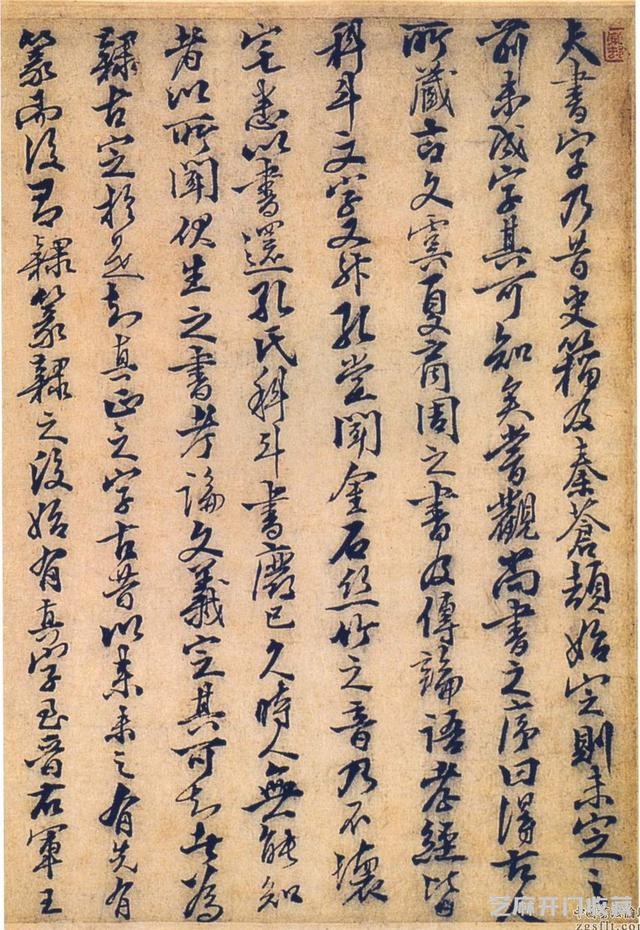 夫書字乃昔史籀及秦蒼頡始定則未定之
前未成字其可知矣嘗觀尚書之序曰得古人
所藏古文虞夏商周之書及傳論語孝經皆
科斗文字又升孔堂聞金石絲竹之音乃不壞
宅悉以書還孔氏科斗書廢已久時人無能知
者以所聞伏生之書考論文義定其可知者為
隸古定於是知真正之字古昔以來未之有先有
篆而後即隸篆隸之後始有真字至晉右軍王
芝麻开门收藏